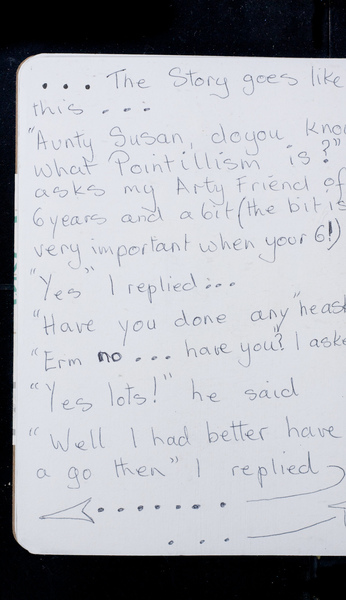 ... The Story goes like
this ...
"Aunty Susan, do you kno
what Pointillism is?"
asks my Arty Friend of
6 years and a bit (the bit is
very important when your 6!)
"Yes" I replied...
"Have you done any" heask
"Erm no ... have you? I aske
"Yes lots!" he said
"Well I had better have
a go then" I replied